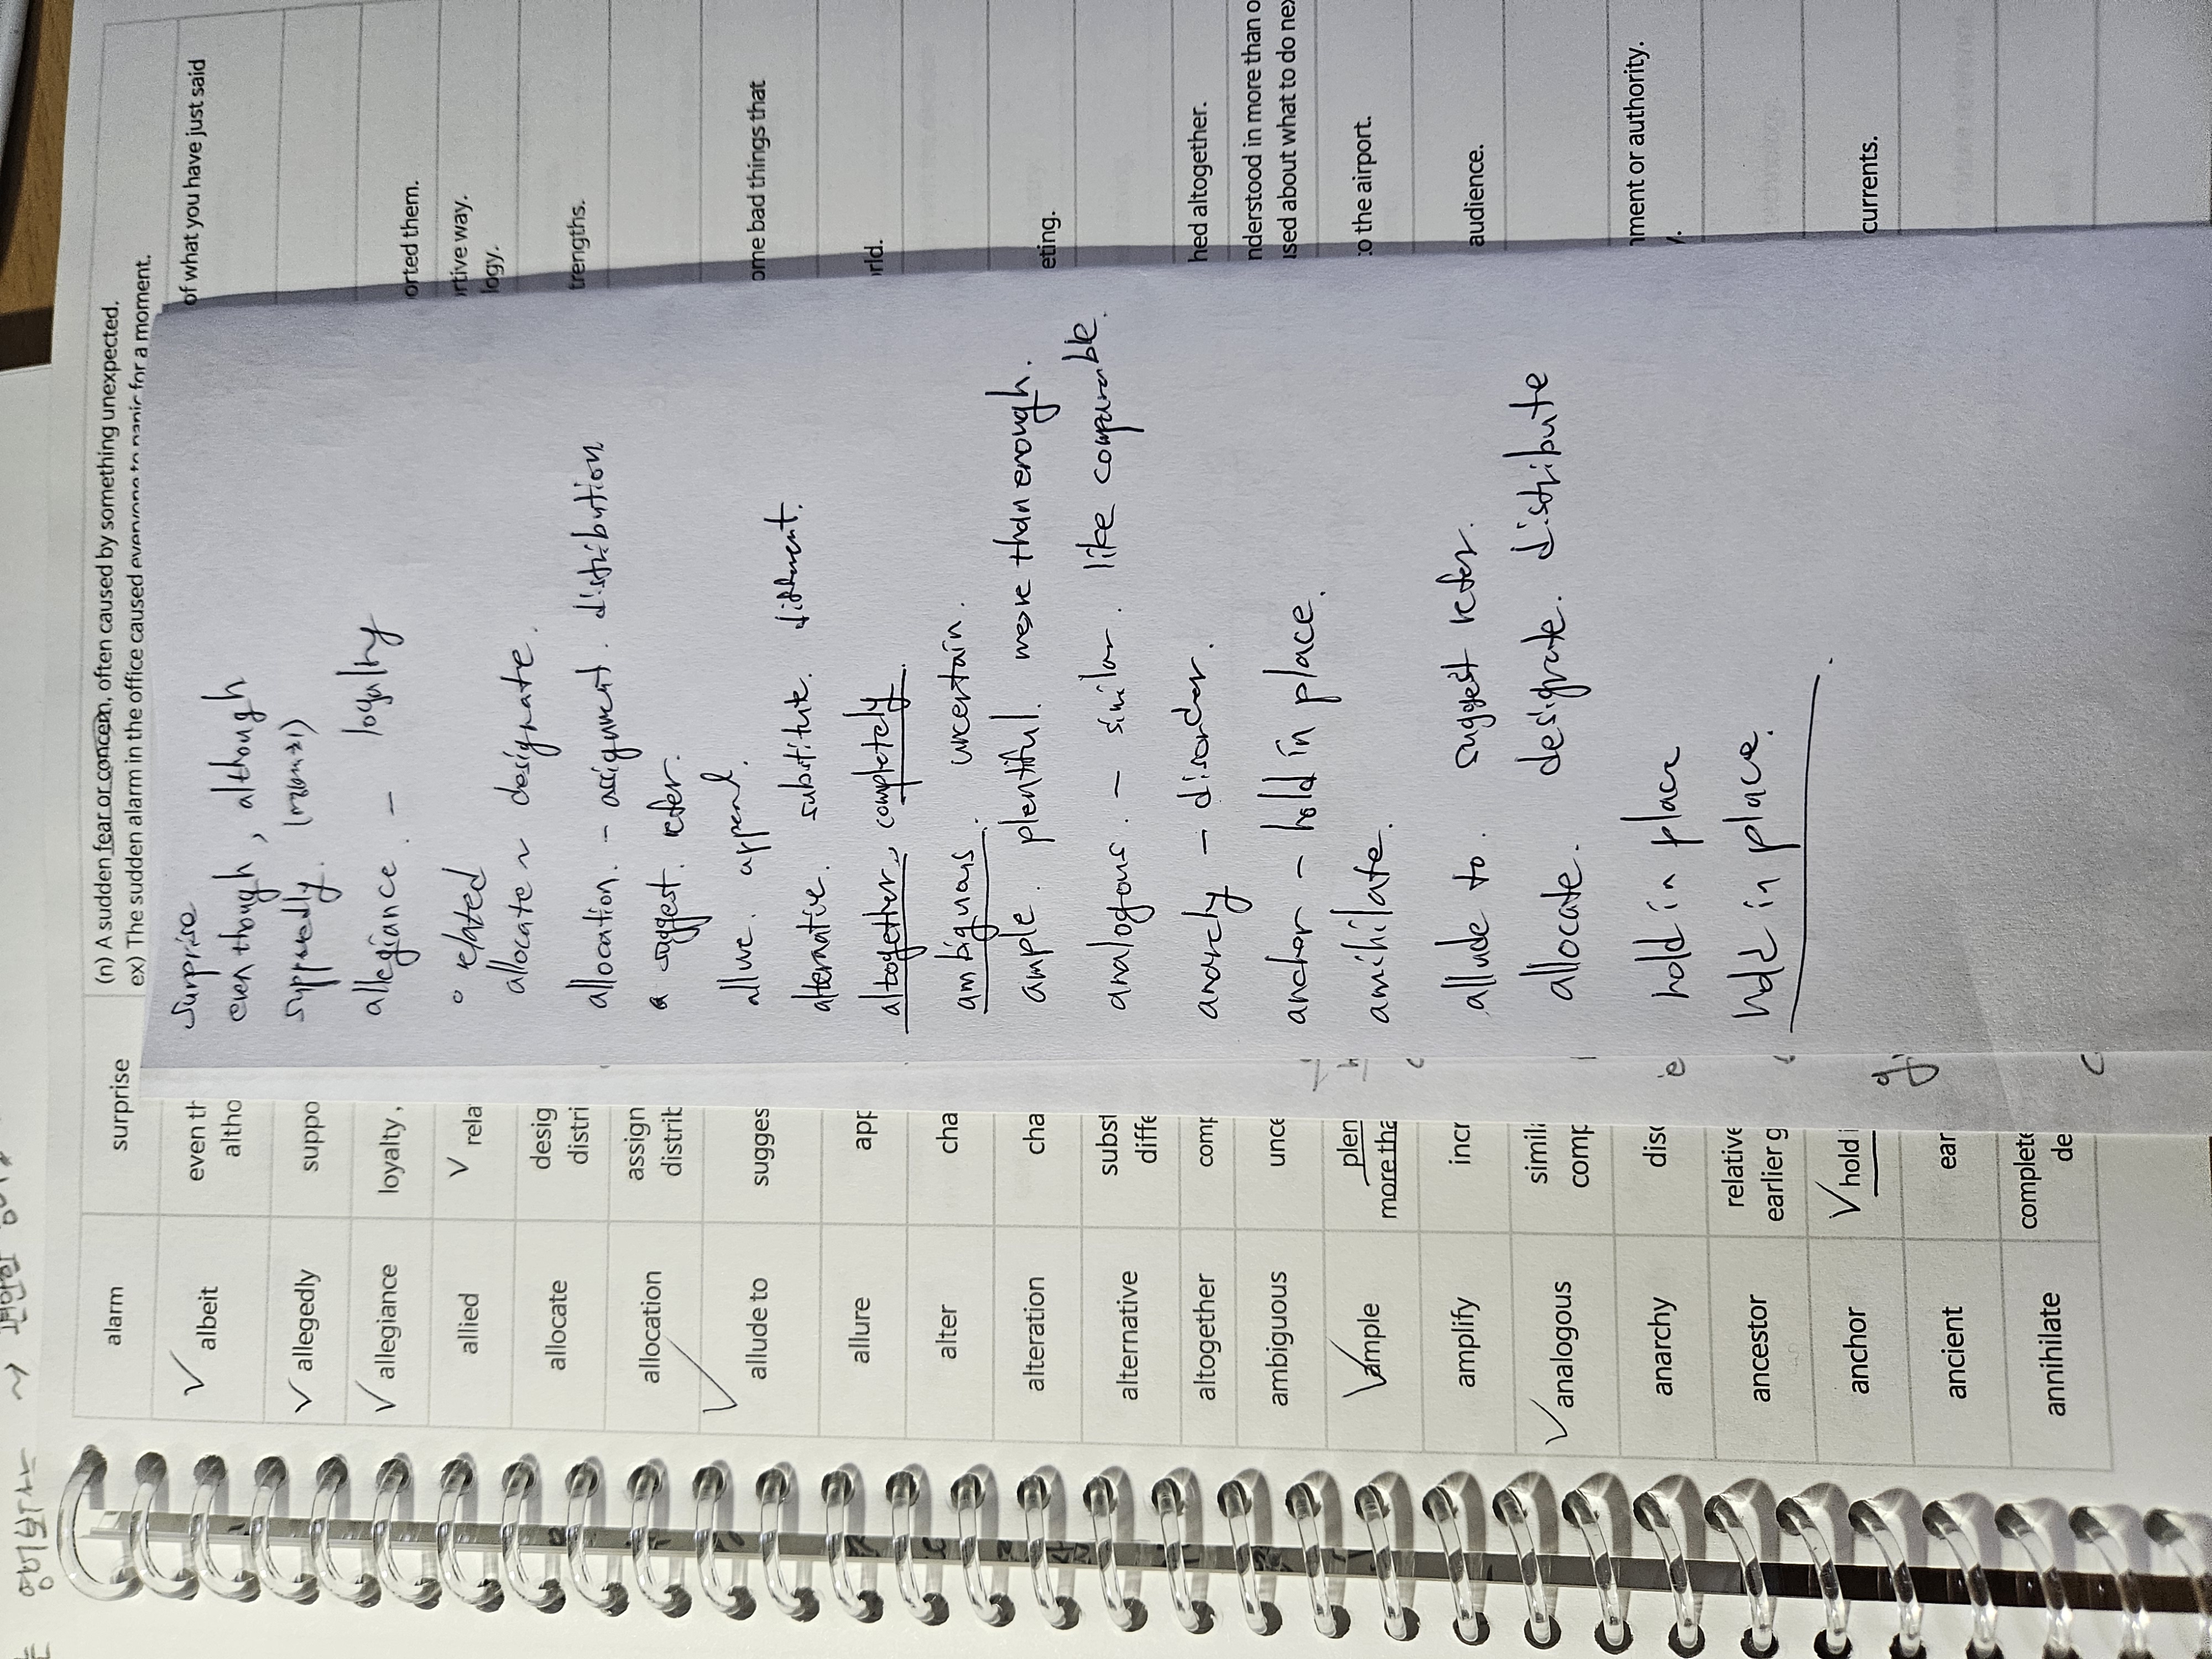 alarm surprise (n) A sudden fear or concern, often caused by something unexpected.
ex) The sudden alarm in the office caused everyone to panic for a moment.
albeit even th
altho
of what you have just said
allegedly suppo
allegiance loyalty,
orted them.
allied rela
rtive way.
logy.
allocate desig
distri
trengths.
allocation assign
distrib
allude to sugges
ome bad things that
allure app
rld.
alter cha
alteration cha
eting.
alternative subst
diffe
altogether comp
hed altogether.
ambiguous unce
nderstood in more than o
used about what to do nex
ample plen
more tha
to the airport.
amplify incr
audience.
analogous simil
comp
anarchy diso
nment or authority.
y.
ancestor relative
earlier g
anchor hold i
currents.
ancient ear
annihilate complete
de
surprise
even though, although
supposedly.
allegiance. - loyalty
related
allocate ~ designate.
allocation. - assignment. distribution
suggest. refer.
allure. appeal.
alternative. substitute. different.
altogether, completely.
ambiguous. uncertain.
ample. plentiful. more than enough.
analogous. - similar. like comparable.
anarchy - disorder.
anchor - hold in place.
annihilate.
allude to. suggest refer.
allocate. designate. distribute
hold in place
hold in place.